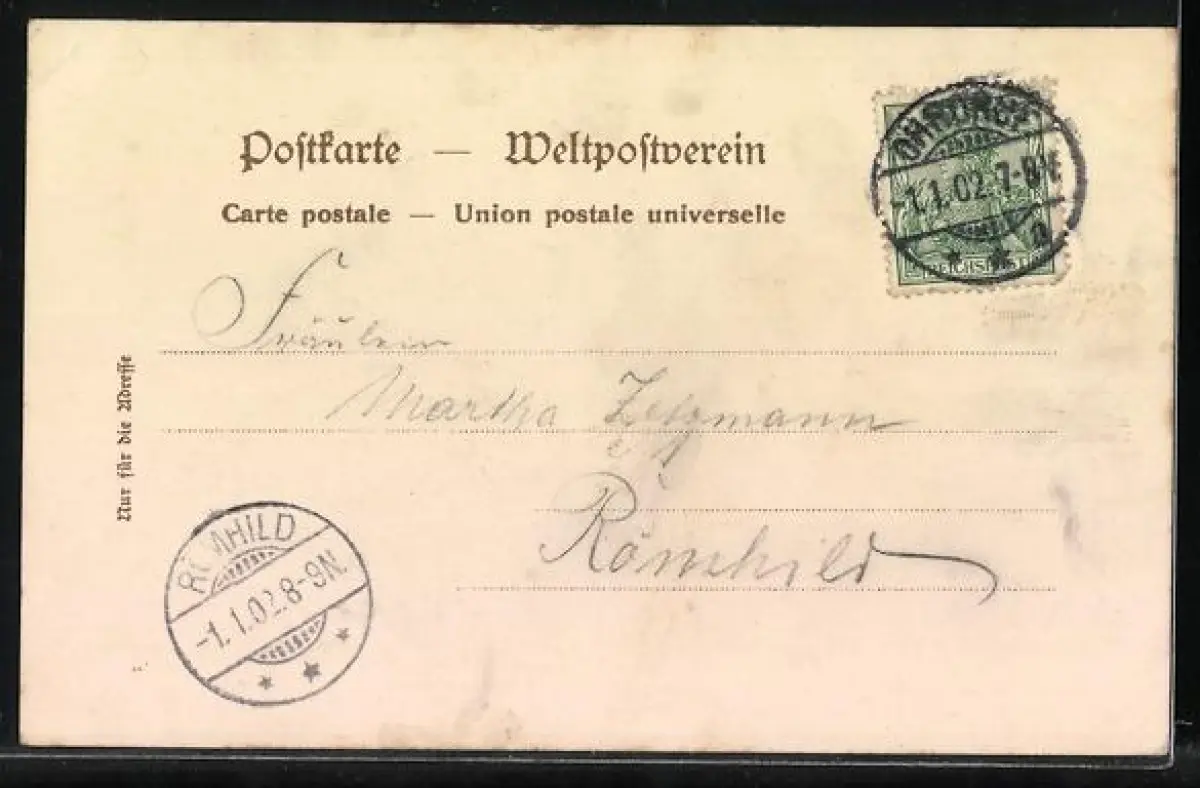 Postkarte — Weltpostverein
Carte postale — Union postale universelle
OHRDRUF
-1.1.02.7-8V.
a
REICHSPOST
Fräulein
Martha
Römhild
Nur für die Adresse
RÖMHILD
-1.1.02.8-9N.